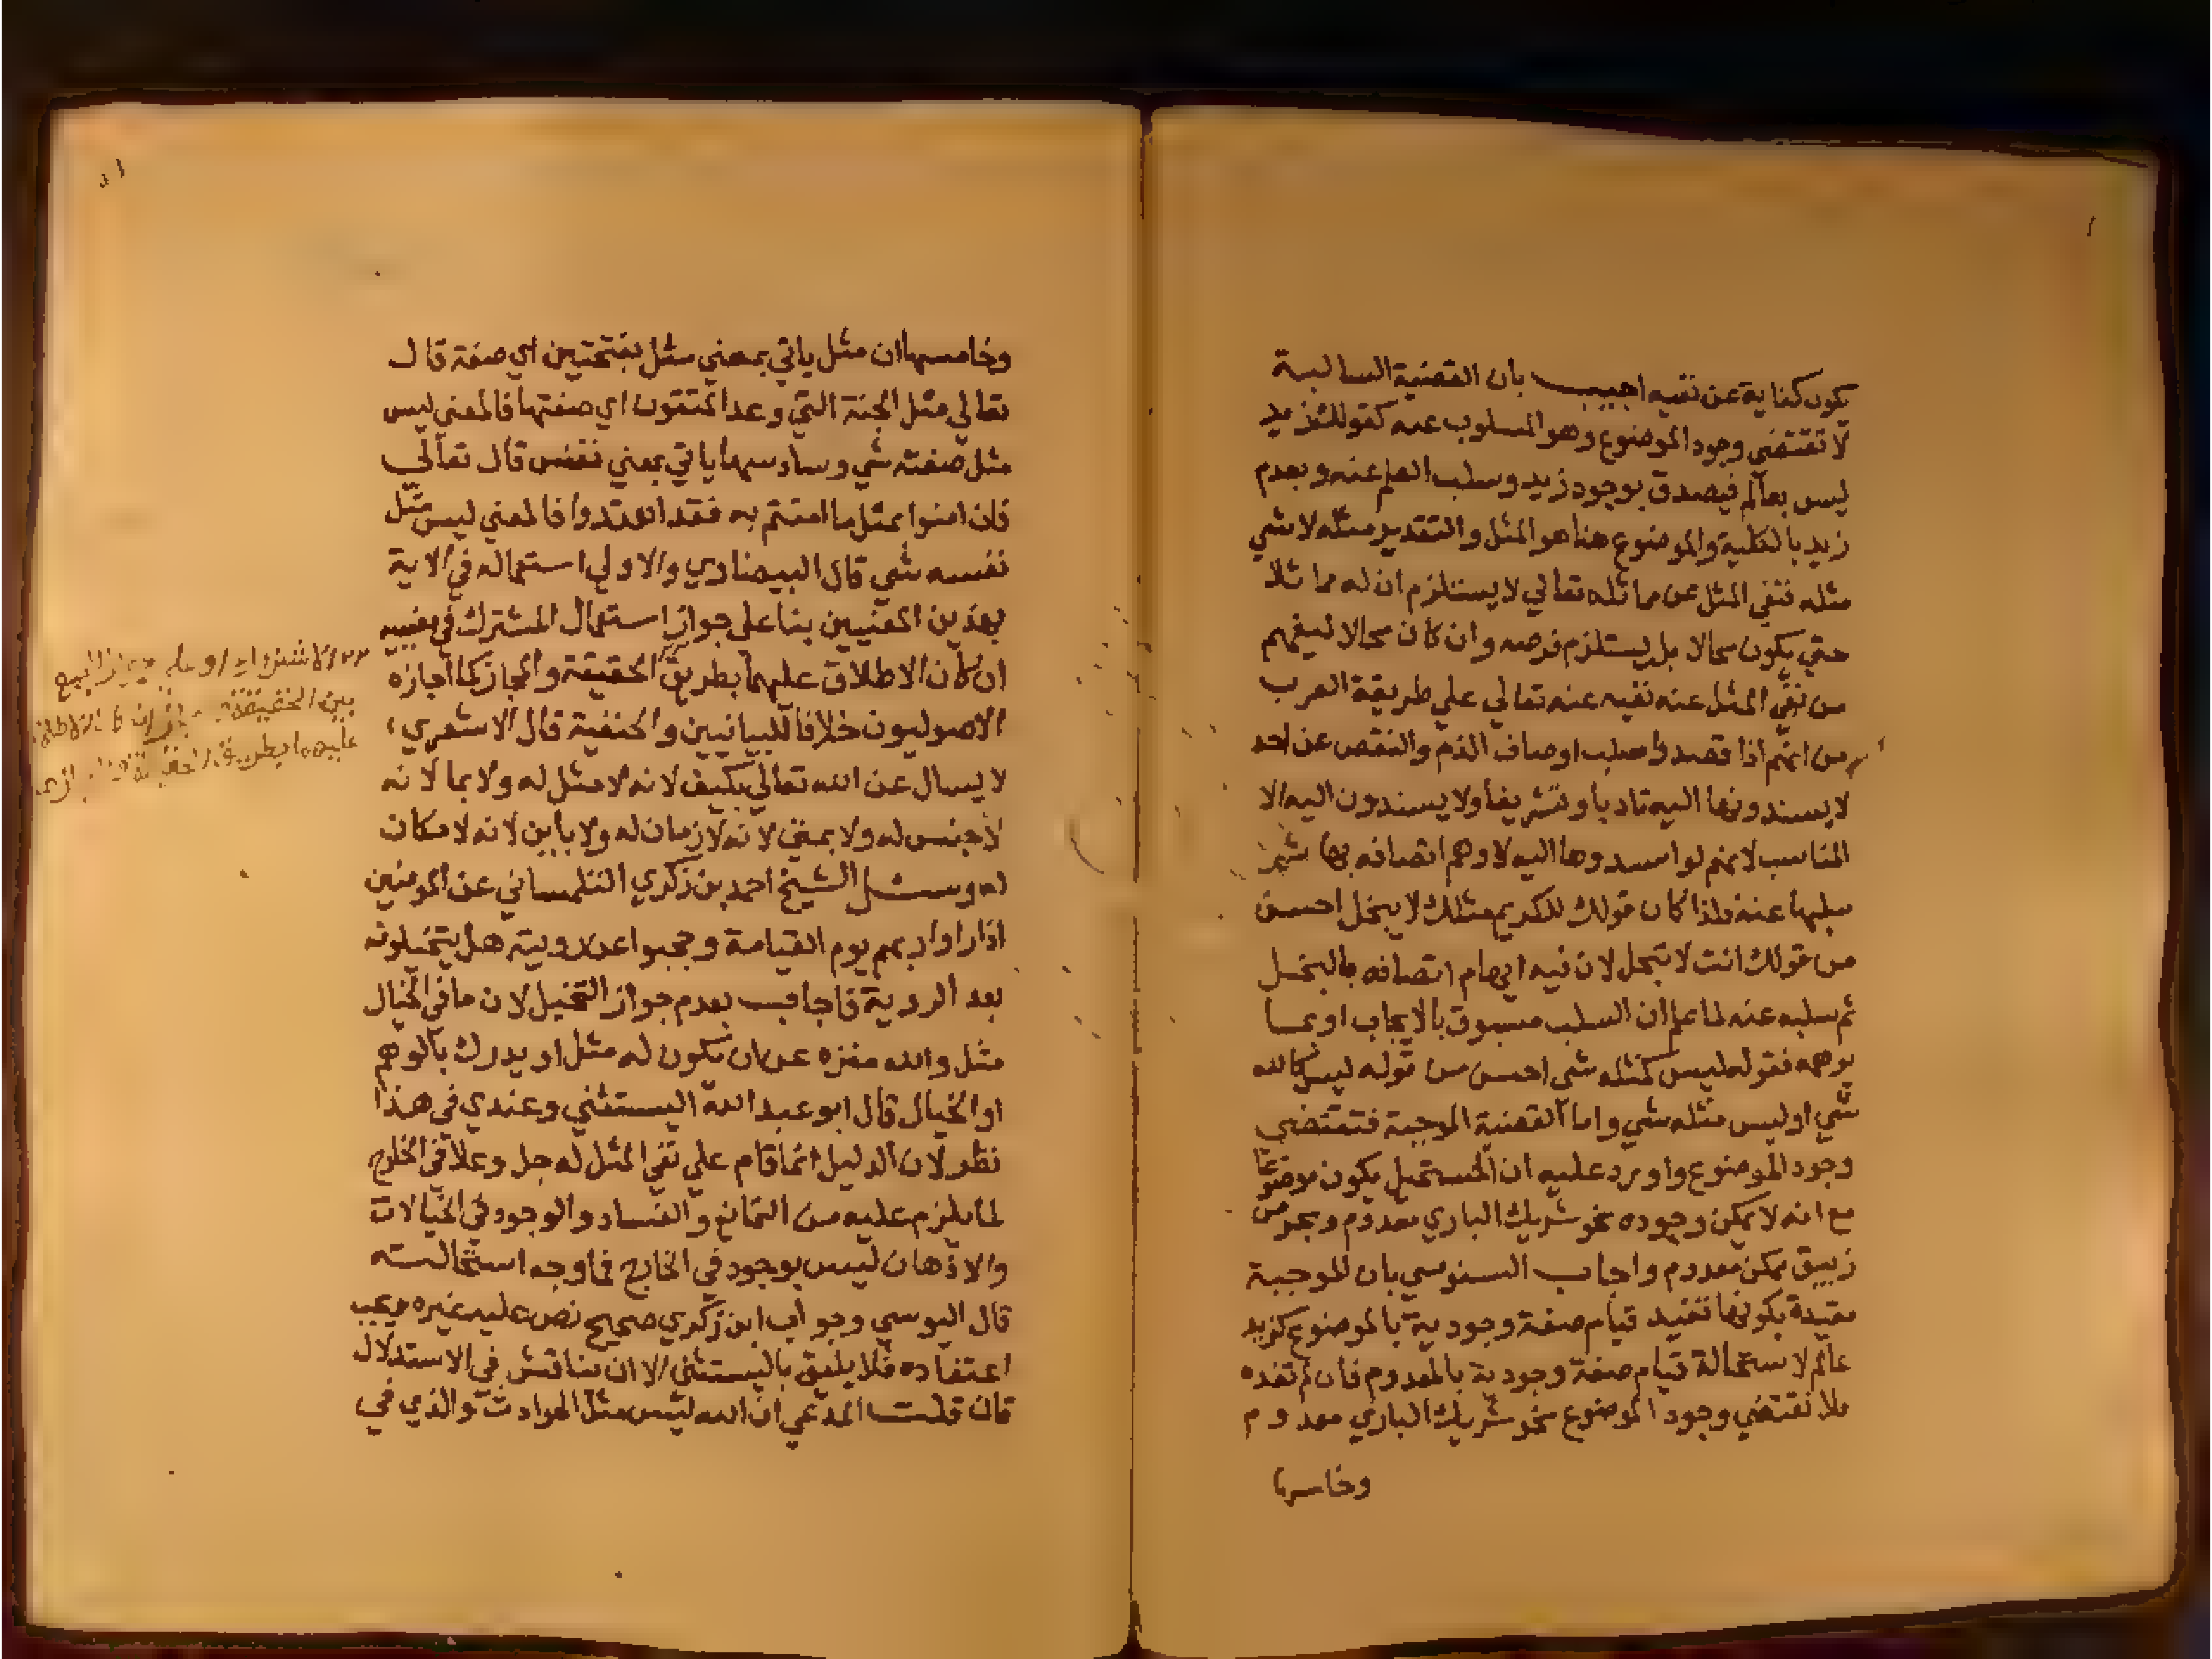 يكون كناية عن نفيه اجيب بان القضية السالبة
لا تقتضي وجود الموضوع وهو المسلوب عنه كقولك زيد
ليس بعالم فيصدق بوجود زيد وسلب العلم عنه وبعدم
زيد بالكلية والموضوع هنا هو المثل والتقدير مثله لا شي
مثله فنفي المثل عن مماثله تعالي لا يستلزم ان له مماثلا
حتي يكون محالا بل يستلزم فرضه وان كان محالا ليفهم
من نفي المثل عنه نفيه عنه تعالي علي طريقة العرب
من انهم اذا قصدوا سلب اوصاف الذم والنقص عن احد
لا يسندونها اليه تادبا وتشريفا ولا يسندون اليه الا
المناسب لانهم لو اسندوها اليه لاوهم اتصافه بها ثم
سلبها عنه فلذا كان قولك للكريم مثلك لا يبخل احسن
من قولك انت لا تبخل لان فيه ايهام اتصافه بالبخل
ثم سلبه عنه لما علم ان السلب مسبوق بالايجاب او بما
يوهمه فقوله ليس كمثله شي احسن من قوله ليس كالله
شي او ليس مثله شي واما القضية الموجبة فتقتضي
وجود الموضوع واورد عليه ان المستحيل يكون موضوعا
مع انه لا يمكن وجوده نحو شريك الباري معدوم وبحر من
زيبق ممكن معدوم واجاب السنوسي بان الموجبة
مقيدة بكونها تفيد قيام صفة وجودية بالموضوع كزيد
عالم لاستحالة قيام صفة وجودية بالمعدوم فان لم تفده
فلا تقتضي وجود الموضوع نحو شريك الباري معدوم
وخامسها
وخامسها ان مثل ياتي بمعني مثل بفتحتين اي صفة قال
تعالي مثل الجنة التي وعد المتقون اي صفتها فالمعني ليس
مثل صفته شي وسادسها ياتي بمعني نفس قال تعالي
فان امنوا بمثل ما امنتم به فقد اهتدوا فالمعني ليس مثل
نفسه شي قال البيضاوي والاولي استعماله في الاية
بهذين المعنيين بنا علي جواز استعمال المشترك في معنييه
ان كان الاطلاق عليهما بطريق الحقيقة والمجاز كما اجازه
الاصوليون خلافا للبيانيين والحنفية قال الاشعري
لا يسال عن الله تعالي بكيف لانه لا مثل له ولا بما لانه
لا جنس له ولا بمتي لانه لا زمان له ولا باين لانه لا مكان
له وسئل الشيخ احمد بن زكري التلمساني عن المومنين
اذا راوا ربهم يوم القيامة وحجبوا عن رويته هل يتخيلونه
بعد الروية فاجاب بعدم جواز التخيل لان ما في الخيال
مثل والله منزه عن ان يكون له مثل او يدرك بالوهم
او الخيال قال ابو عبد الله اليستثني وعندي في هذا
نظر لان الدليل انما قام علي نفي المثل له جل وعلا في الخارج
لما يلزم عليه من التمانع والفساد والوجود في الخيالات
والاذهان ليس بوجود في الخارج فما وجه استحالته
قال اليوسي وجواب ابن زكري صحيح نص عليه غيره ويجب
اعتقاده فلا يليق باليستثني الا ان يناقش في الاستدلال
فان قلت المدعي ان الله ليس مثل الحوادث والذي في
الاشتراك او علي جواز الجمع
بين الحقيقة والمجاز ان كان الاطلاق
عليهما بطريق الحقيقة